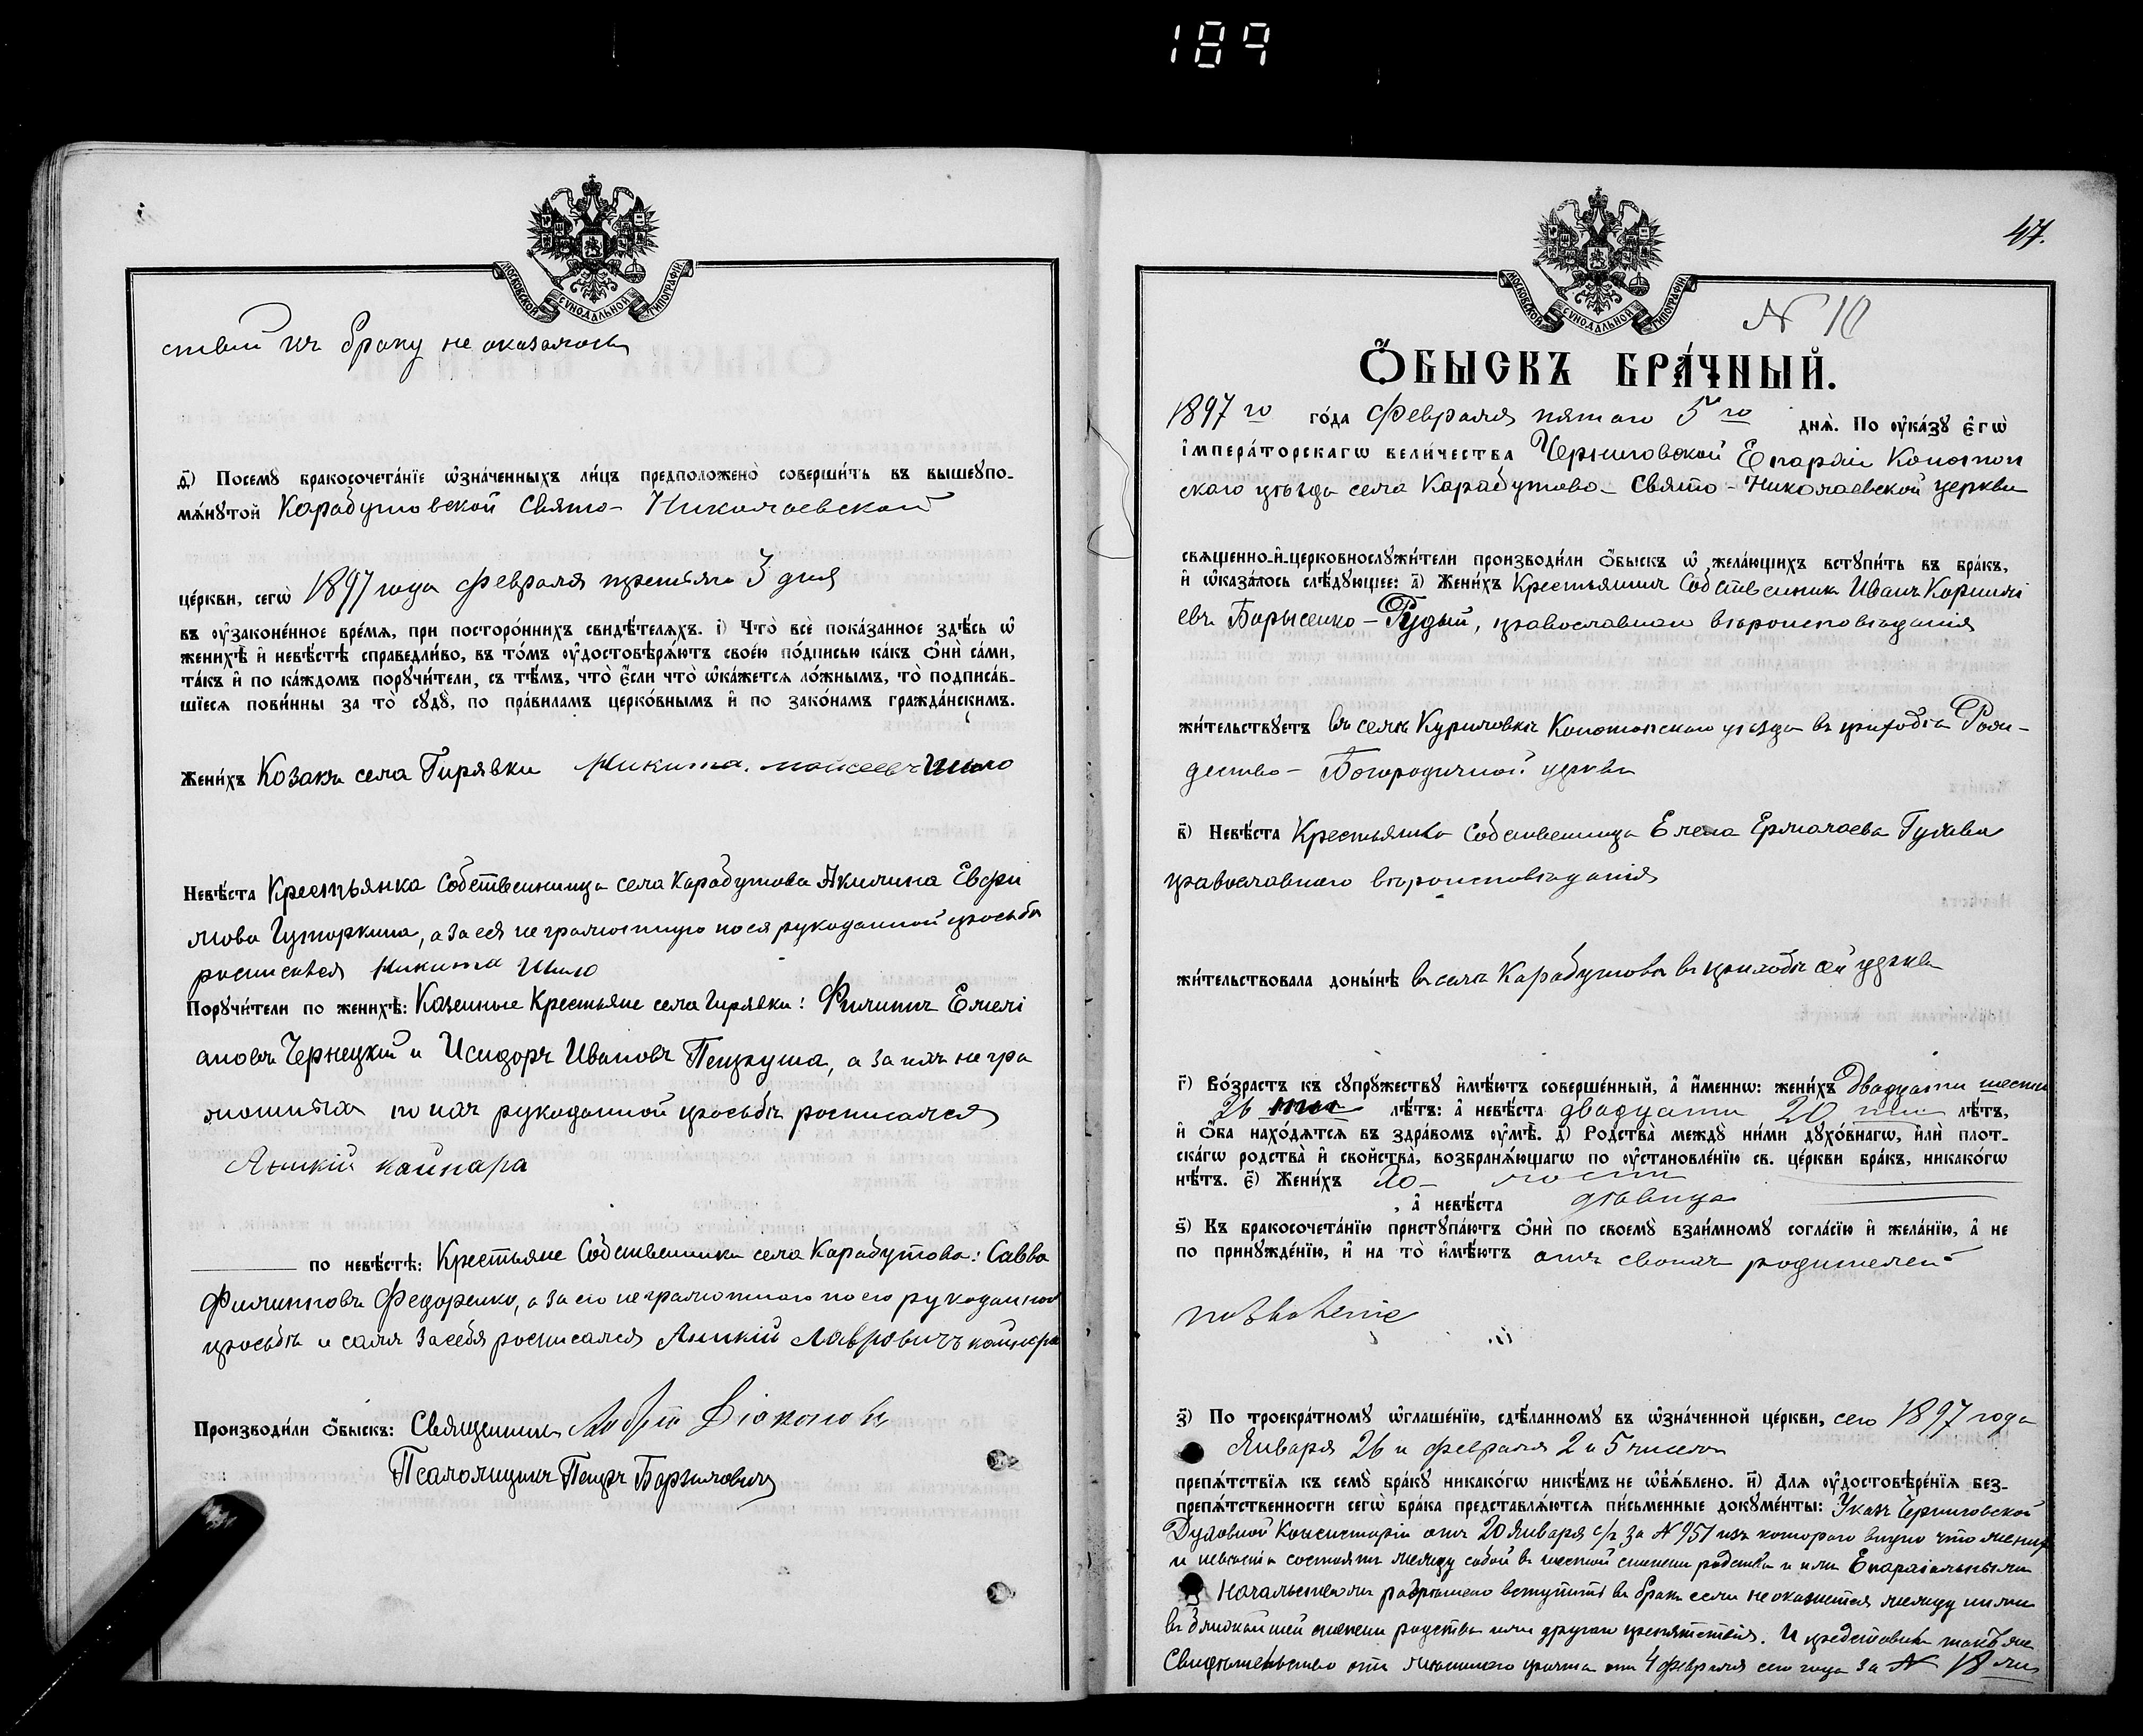 189
МОСКОВСКОЙ СѴНОДАЛЬНОЙ ТИПОГРАФІИ.
ствій къ браку не оказалось
д҃і) Посемꙋ бракосочета́нїе ѡ҆зна́ченныхъ ли́цъ предположено̀ соверши́ть въ вышеꙋпо-
мѧ́нꙋтой Карабутовской Свято-Николаевской
це́ркви, сегѡ̀ 1897 года февраля третьяго 3 дня
въ ᲂу҆зако́ненное вре́мѧ, при посторо́ннихъ свидѣ́телѧхъ. і҃) Что̀ всѐ пока́занное здѣ́сь ѡ҆
женихѣ̀ и҆ невѣ́стѣ справедли́во, въ то́мъ ᲂу҆достовѣрѧ́ютъ свое́ю по́дписью ка́къ ѻ҆нѝ са́ми,
та́къ и҆ по ка́ждомъ порꙋчи́тели, съ тѣ́мъ, что̀ є҆́сли что̀ ѡ҆ка́жетсѧ ло́жнымъ, то̀ подписа́в-
шїесѧ пови́нны за то̀ сꙋдꙋ̀, по пра́виламъ церко́внымъ и҆ по зако́намъ гражда́нскимъ.
Жени́хъ Козакъ села Гирявки Никита моисеевъ Шило
Невѣ́ста Крестьянка Собственница села Карабутова Акилина Евфи
мова Гуторкина, а за нея неграмотную по ея рукоданной просьбѣ
росписался Никита Шило
Порꙋчи́тели по женихѣ̀: Казенные Крестьяне села Гирявки: Филиппъ Емелі
ановъ Чернецкій и Исидоръ Ивановъ Пецкуша, а за ихъ негра
мотныхъ по ихъ рукоданной просьбѣ росписался
Аникій кайнара
по невѣ́стѣ: Крестьяне Собственники села Карабутова: Савва
Филипповъ Федоренко, а за его неграмотнаго по его рукоданной
просьбѣ и самъ за себя росписался Аникій Лавровичъ кайнара
Производи́ли ѻ҆́быскъ: Священникъ Діаконовъ
Псаломщикъ Петръ Баргиловичъ
47.
МОСКОВСКОЙ СѴНОДАЛЬНОЙ ТИПОГРАФІИ.
N 10
Ѻ҆́БЫСКЪ БРА́ЧНЫЙ.
1897 го го́да февраля пятаго 5 го днѧ̀. По ᲂу҆ка́зꙋ є҆гѡ̀
і҆мпера́торскагѡ вели́чества Черниговской Епархіи Конотоп
скаго уѣзда села Карабутова Свято-Николаевской церкви
свѧщенно-и҆-церковнослꙋжи́тели производи́ли ѻ҆́быскъ ѡ҆ жела́ющихъ встꙋпи́ть въ бра́къ,
и҆ ѡ҆каза́лось слѣ́дꙋющее: а҃) Жени́хъ Крестьянинъ Собственникъ Иванъ Корнилі
евъ Борысенко-Рудый, православнаго вѣроисповѣданія
жи́тельствꙋетъ въ селѣ Куриловкѣ Конотопскаго уѣзда въ приходѣ Рож-
дество-Богородичной церкви
в҃) Невѣ́ста Крестьянка Собственница Елена Ермолаева
православнаго вѣроисповѣданія
жи́тельствовала доны́нѣ въ селѣ Карабутовѣ въ приходѣ сей церкви
г҃) Во́зрастъ къ сꙋпрꙋ́жествꙋ и҆мѣ́ютъ соверше́нный, а҆ и҆́меннѡ: жени́хъ двадцати шести
26 лѣ́тъ: а҆ невѣ́ста двадцати 20 ти лѣ́тъ,
и҆ ѻ҆́ба нахо́дѧтсѧ въ здра́вомъ ᲂу҆мѣ̀. д҃) Родства̀ междꙋ̀ ни́ми дꙋхо́внагѡ, и҆лѝ плот-
ска́гѡ родства̀ и҆ свойства̀, возбранѧ́ющагѡ по ᲂу҆становле́нїю св. це́ркви бра́къ, никако́гѡ
нѣ́тъ. є҃) Жени́хъ холостъ
, а҆ невѣ́ста дѣвица
ѕ҃) Къ бракосочета́нїю пристꙋпа́ютъ ѻ҆нѝ по своемꙋ̀ взаи́мномꙋ согла́сїю и҆ жела́нїю, а҆ не
по принꙋжде́нїю, и҆ на то̀ и҆мѣ́ютъ отъ своихъ родителей
позволеніе
з҃) По троекра́тномꙋ ѡ҆глаше́нїю, сдѣ́ланномꙋ въ ѡ҆зна́ченной це́ркви, сего 1897 года
Января 26 и февраля 2 и 5 числа
препѧ́тствїѧ къ семꙋ̀ бра́кꙋ никако́гѡ никѣ́мъ не ѡ҆б̾ѧ́влено. и҃) Длѧ ᲂу҆достовѣре́нїѧ без-
препѧ́тственности сегѡ̀ бра́ка представлѧ́ютсѧ пи́сьменные докꙋме́нты: Указъ Черниговской
Духовной Консисторіи отъ 20 Января с/г за N 951 изъ котораго видно что женихъ
и невѣста состоятъ между собой въ шестой степени родства и имъ Епархіальнымъ
Начальствомъ разрѣшено вступить въ бракъ если не окажется между ними
въ ближайшей степени родства или другаго препятствія. И представилъ также
Свидѣтельство отъ мѣстнаго причта отъ 4 февраля сего года за N 18